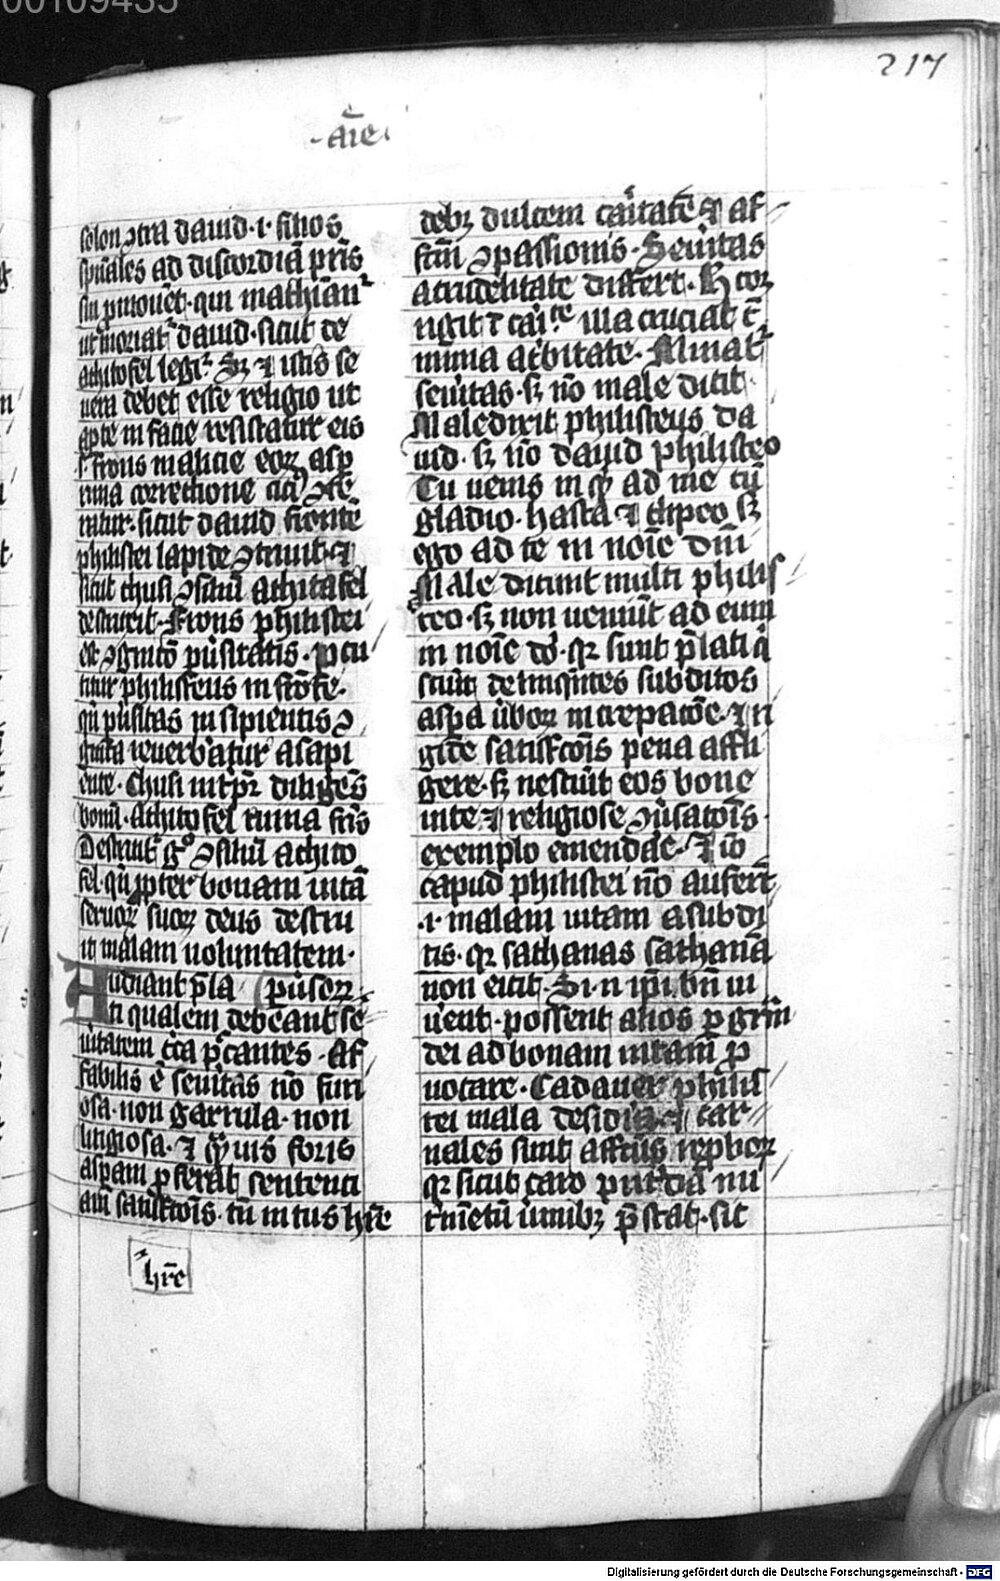 00109435
217
·aīe·
solon ꝯtra dauid ·i· filios
spūales ad discordiā pr̄is
sui ꝓmouēt · qui machīanꝉ
ut moriatꝉ dauid · sicut de
achitofel legiꝉ Sꝫ ⁊ istis se
uera debet esse religio ut
apte in facie resistatur eis
frons malicie eoꝝ asp
rima correctione
ratur · sicut dauid frontē
philistei lapide ꝯtriuit · ⁊
sicut chusi ꝯsiliū achitafel
destruxit · Frons philistei
est ꝯgnitō pūsitatis · ꝑcu
titur philisteus in frōte ·
qn̄ pūsitas insipientis ꝯ
gnita reuerb̓atur a sapi
ēnte · Chusi int̓pr̄ diligēs
bonū · Achitofel ruina fr̄is
Destruitꝉ gͦ ꝯsiliū achito
fel · qn̄ ꝓpter bonam uitā
seruoꝝ suoꝝ deus destru
it malam uoluntatem ·
Audiant p̄la puisoꝝ
ti qualem debeant se
uitatem cͨa pͨcantes · Af
fabilis ē seuitas nō furi
osa · non garrula · non
litigiosa · ⁊ qͣuis foris
asperam ꝓferat sententi
am satisfctōis · tn̄ intus hr̄e
hr̄e
debꝫ dulcem caritatē ⁊ af
fctm̄ ꝯpassionis · Seuitas
a crudelitate differt · H̄ cor
rigit ī cai͛te illa cruciat cͣ
mina acͣbitate · Minatꝉ
seuitas · sꝫ nō male dicit ·
Maledixit philisteus da
uid · sꝫ nō dauid philisteo
Tu uenis inqͥ ad me cū
gladio · hasta ⁊ clipeo sꝫ
ego ad te in noīe dn̄i
Male dicunt multi philis
teo · sꝫ non ueniūt ad eum
in noīe dī · qꝛ sunt p̄lati qͥ
sciūt delinq̄ntes subditos
asꝑa ūboꝝ increpacōe · ⁊ ī
gite satisfctōis pena affli
gere · sꝫ nesciūt eos bone
uite ⁊ religiose ꝯūsatōis
exemplo emendāe · ⁊ iō
capud philistei nō auferūt
·i· malam uitam a subdi
tis · qꝛ sathanas sathanā
non eicit · Si · n̄ ip̄i bn̄ ui
uent · possent alios ꝑ grām
dei ad bonam uitam ꝓ
uocare · Cadauer philis
tei mala desidia ⁊ car
nales sunt affctūs reproboꝝ
qꝛ sicut caro putrida nu
tͥmētū ūmibꝫ p̄stat · sic
Digitalisierung gefördert durch die Deutsche Forschungsgemeinschaft - DFG